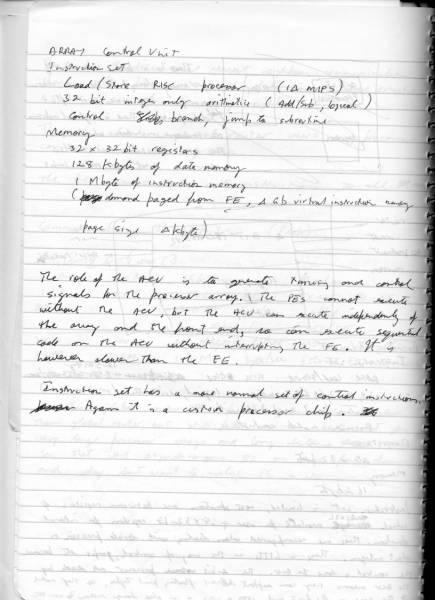 ARRAY Control Unit
Instruction set
Load / Store RISC processor (1Δ MIPS)
32 bit integer only arithmetic (Add/Sub, logical)
Control branch, jump to subroutine
Memory
32 x 32 bit registers
128 Kbytes of data memory
1 Mbyte of instruction memory
(demand paged from FE, Δ Gb virtual instruction memory
page size Δ Kbyte)
The role of the ACU is to generate and control
signals for the processor array. The PEs cannot execute
without the ACU, but the ACU can execute independently of
the array and the front end, so can execute sequential
code on the ACU without interrupting the FE. It is
however slower than the FE.
Instruction set has a more normal set of control instructions.
Again it is a custom processor chip.